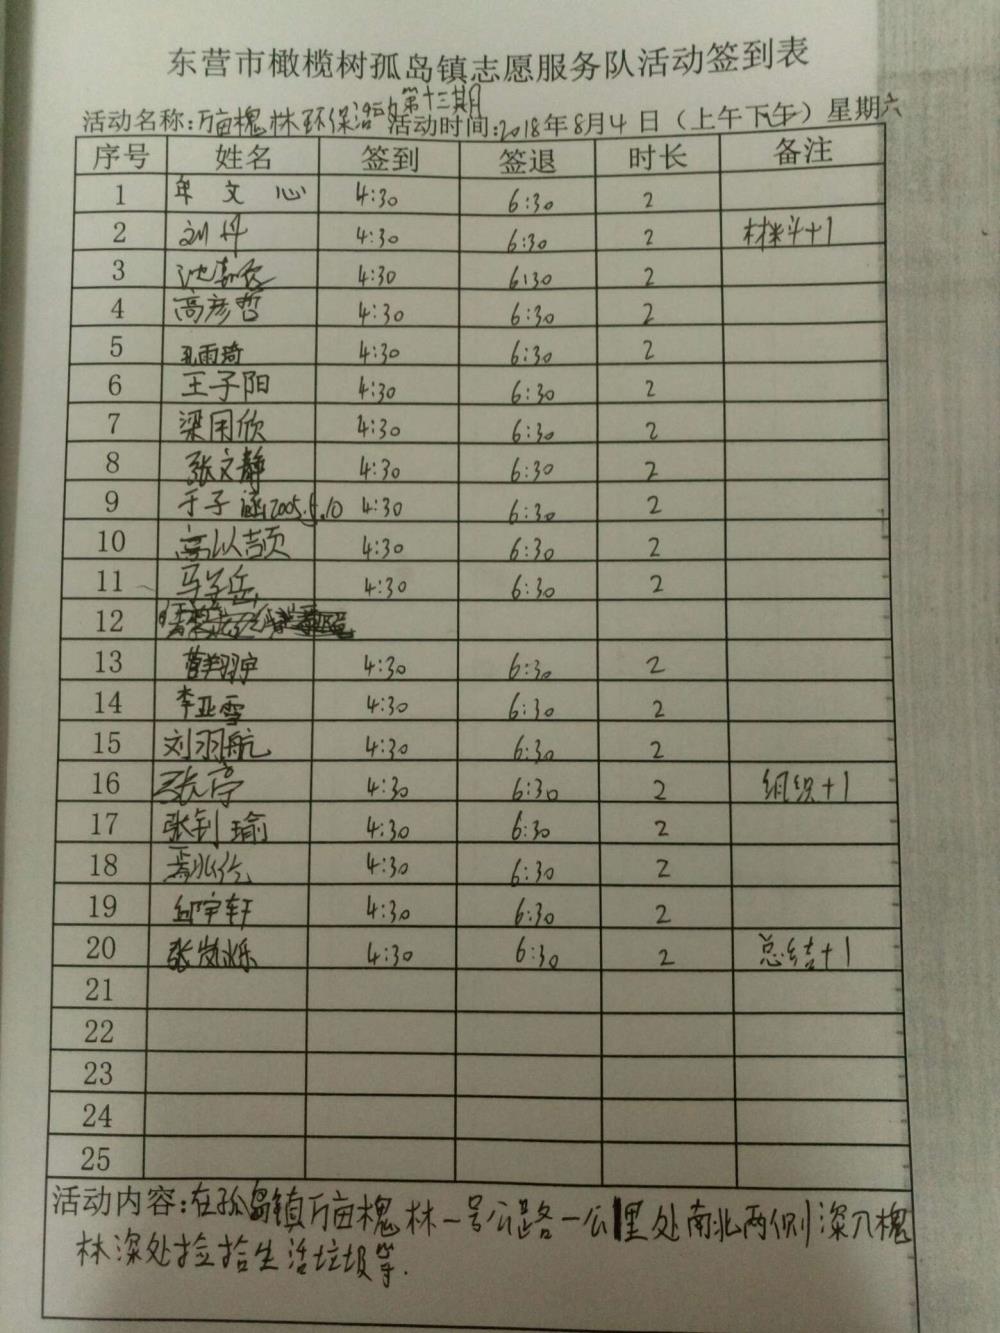 东营市橄榄树孤岛镇志愿服务队活动签到表
活动名称:万亩槐林环保活动第十三期 活动时间:2018年8月4日(上午下午)星期六
序号 姓名 签到 签退 时长 备注
1 牟文心 4:30 6:30 2
2 刘丹 4:30 6:30 2 材料+1
3 4:30 6:30 2
4 高彦哲 4:30 6:30 2
5 孔雨琦 4:30 6:30 2
6 王子阳 4:30 6:30 2
7 梁 欣 4:30 6:30 2
8 张文静 4:30 6:30 2
9 于子涵2005.5.10 4:30 6:30 2
10 高以颉 4:30 6:30 2
11 马 岳 4:30 6:30 2
12
13 曹翔宇 4:30 6:30 2
14 李亚雪 4:30 6:30 2
15 刘羽航 4:30 6:30 2
16 张亭 4:30 6:30 2 组织+1
17 张钊瑜 4:30 6:30 2
18 4:30 6:30 2
19 邱宇轩 4:30 6:30 2
20 张岚烁 4:30 6:30 2 总结+1
21
22
23
24
25
活动内容:在孤岛镇万亩槐林一号公路一公里处南北两侧深入槐
林深处捡拾生活垃圾等.